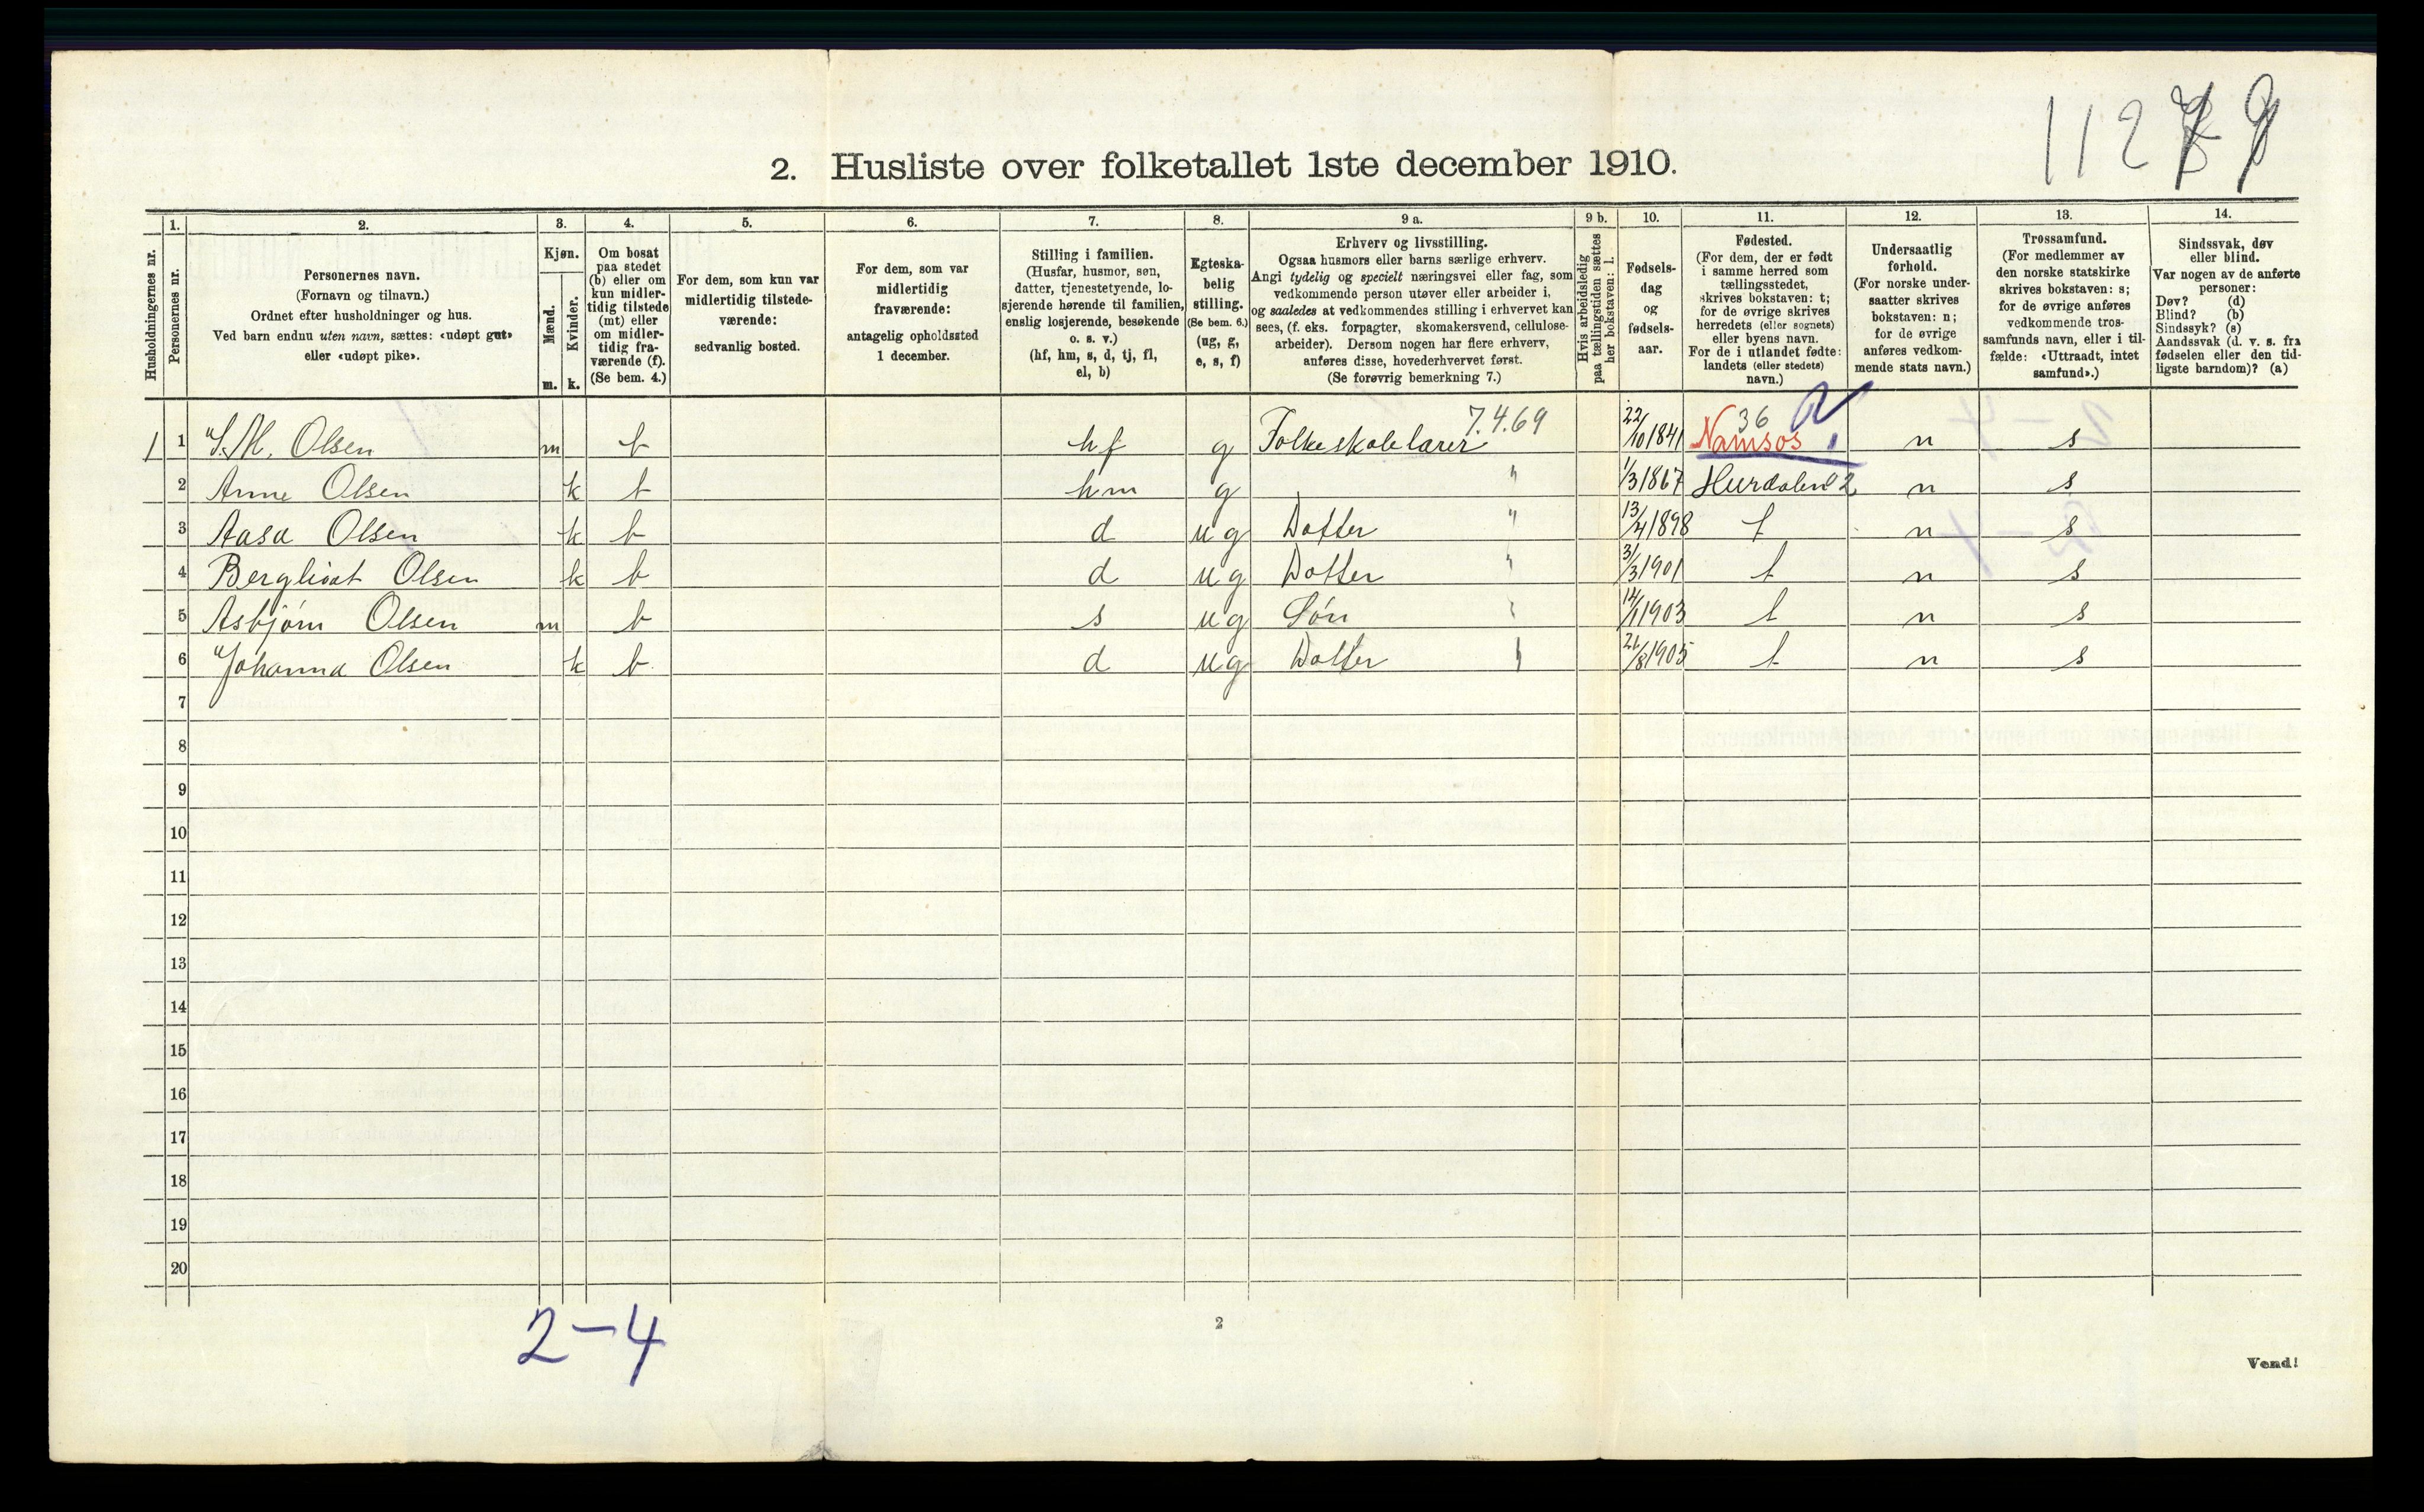 11279
2. Husliste over folketallet 1ste december 1910.
Husholdningernes nr.
1. Personernes nr.
2. Personernes navn.
(Fornavn og tilnavn.)
Ordnet efter husholdninger og hus.
Ved barn endnu uten navn, sættes: «udøpt gut»
eller «udøpt pike».
3. Kjøn.
Mænd. m.
Kvinder. k.
4. Om bosat
paa stedet
(b) eller om
kun midler-
tidig tilstede
(mt) eller
om midler-
tidig fra-
værende (f).
(Se bem. 4.)
5. For dem, som kun var
midlertidig tilstede-
værende:
sedvanlig bosted.
6. For dem, som var
midlertidig
fraværende:
antagelig opholdssted
1 december.
7. Stilling i familien.
(Husfar, husmor, søn,
datter, tjenestetyende, lo-
sjerende hørende til familien,
enslig losjerende, besøkende
o. s. v.)
(hf, hm, s, d, tj, fl,
el, b)
8. Egteska-
belig
stilling.
(Se bem. 6.)
(ug, g,
e, s, f)
9 a. Erhverv og livsstilling.
Ogsaa husmors eller barns særlige erhverv.
Angi tydelig og specielt næringsvei eller fag, som
vedkommende person utøver eller arbeider i,
og saaledes at vedkommendes stilling i erhvervet kan
sees, (f. eks. forpagter, skomakersvend, cellulose-
arbeider). Dersom nogen har flere erhverv,
anføres disse, hovederhvervet først.
(Se forøvrig bemerkning 7.)
9 b. Hvis arbeidsledig
paa tællingstiden sættes
her bokstaven: l.
10. Fødsels-
dag
og
fødsels-
aar.
11. Fødested.
(For dem, der er født
i samme herred som
tællingsstedet,
skrives bokstaven: t;
for de øvrige skrives
herredets (eller sognets)
eller byens navn.
For de i utlandet fødte:
landets (eller stedets)
navn.)
12. Undersaatlig
forhold.
(For norske under-
saatter skrives
bokstaven: n;
for de øvrige
anføres vedkom-
mende stats navn.)
13. Trossamfund.
(For medlemmer av
den norske statskirke
skrives bokstaven: s;
for de øvrige anføres
vedkommende tros-
samfunds navn, eller i til-
fælde: «Uttraadt, intet
samfund».)
14. Sindssvak, døv
eller blind.
Var nogen av de anførte
personer:
Døv? (d)
Blind? (b)
Sindssyk? (s)
Aandssvak (d. v. s. fra
fødselen eller den tid-
ligste barndom)? (a)
7.4.69 36
1 1 J. M. Olsen m b hf g Folkeskolelærer 22/10 1841 Namsos 1 n s
2 Anne Olsen k b hm g " 1/3 1867 Hurdalen 2 n s
3 Aasa Olsen k b d ug Datter " 13/4 1898 t n s
4 Bergliot Olsen k b d ug Datter " 3/3 1901 t n s
5 Asbjørn Olsen m b s ug Søn " 14/1 1903 t n s
6 Johanna Olsen k b d ug Datter " 21/8 1905 t n s
7
8
9
10
11
12
13
14
15
16
17
18
19
20
2-4
2
Vend!